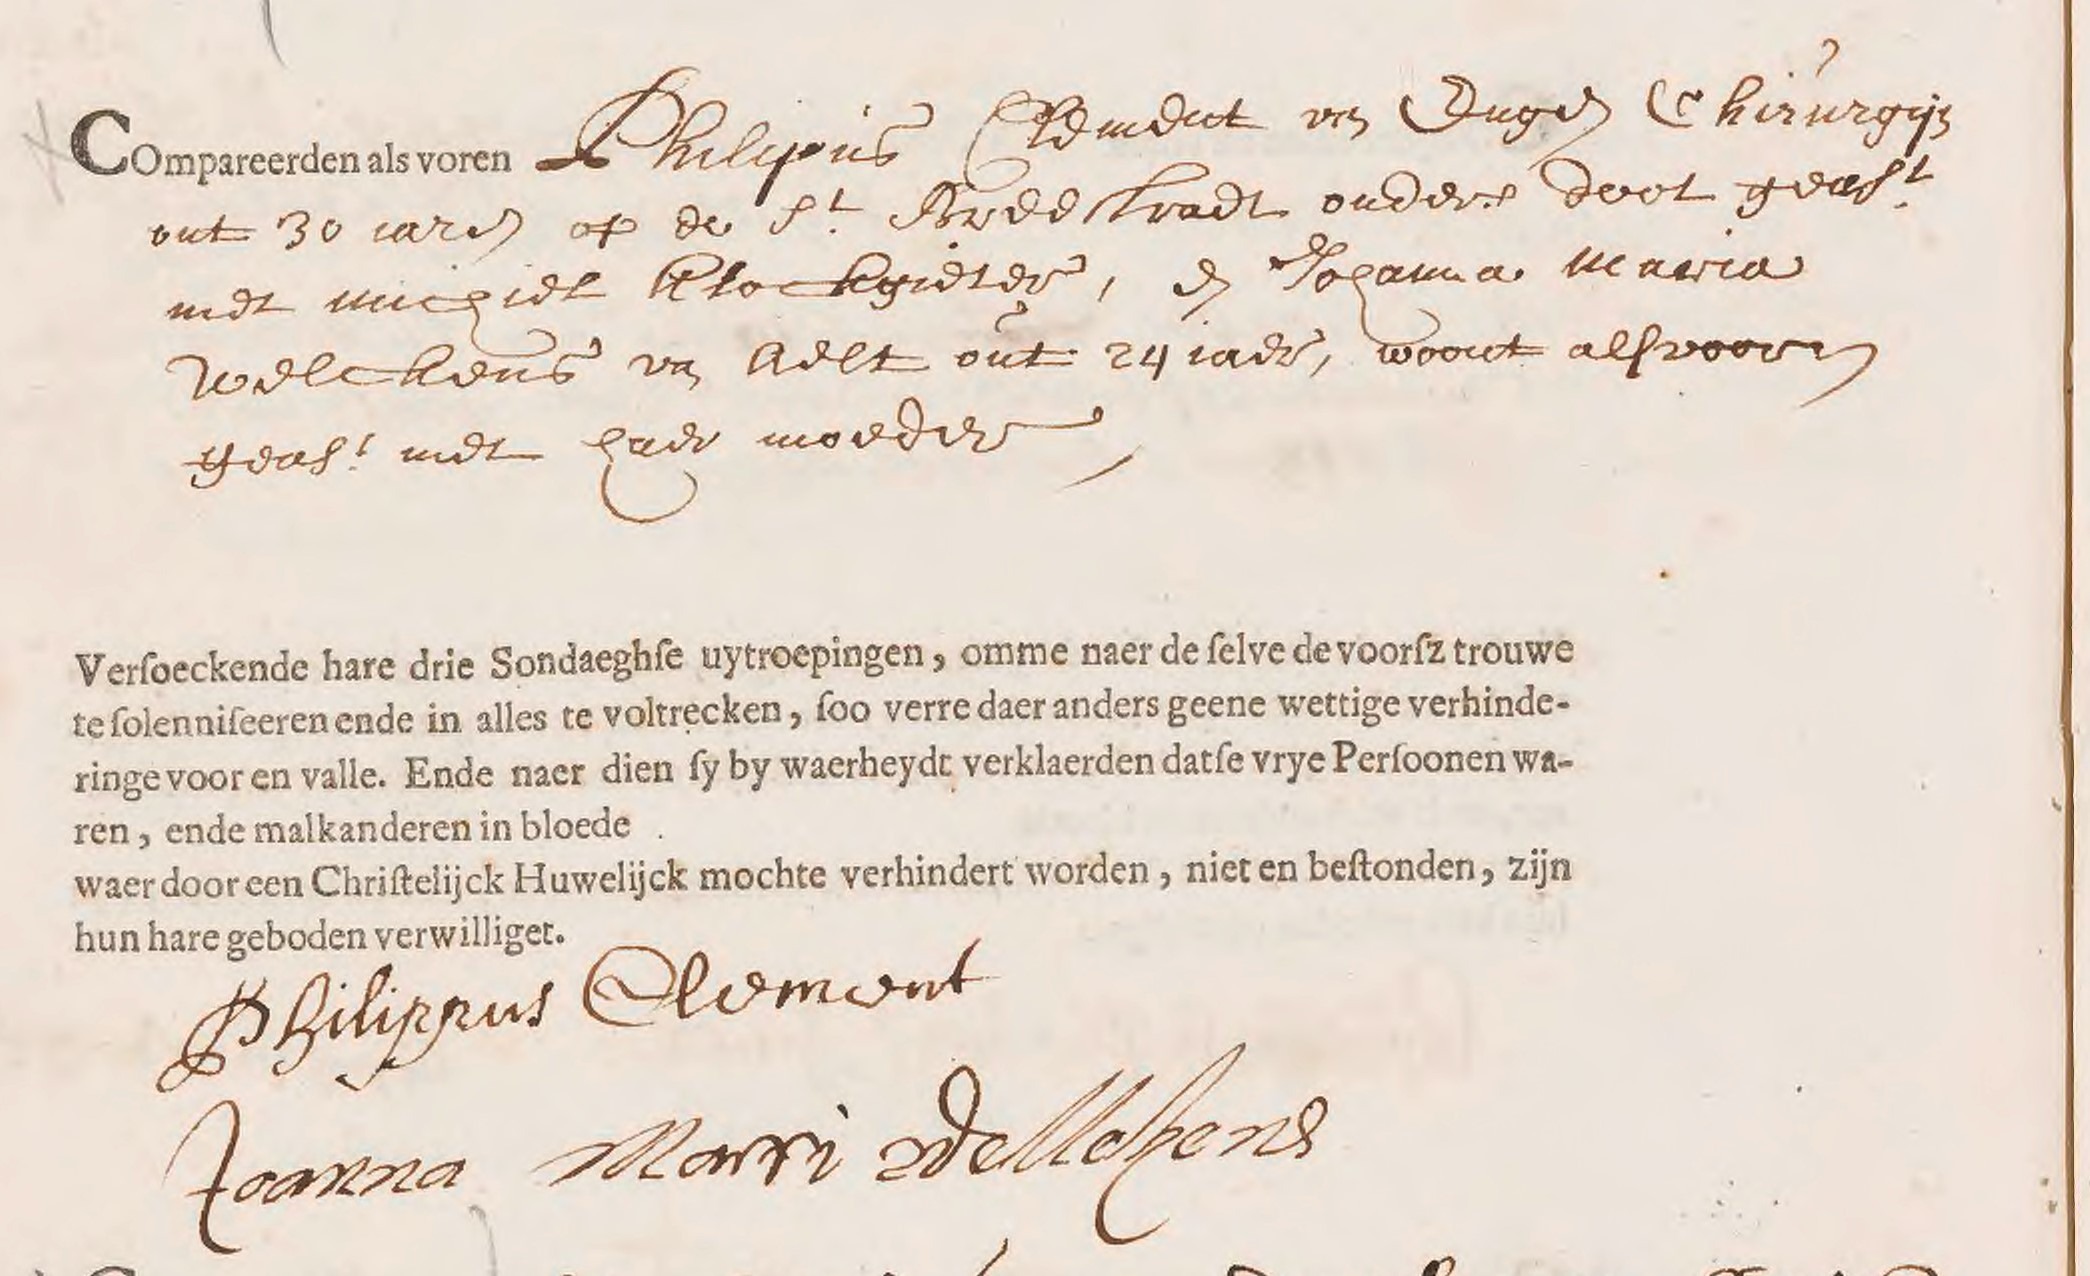 COmpareerden als voren Philippus Clement van Chirurgijn
out 30 iaren op de St. Breestraet ouders doot geast.
met Michiel Klockgieter, en Johanna Maria
Welckens van Aelt out 24 iaer, woont als vooren
geast. met haer moeder
Verſoeckende hare drie Sondaeghſe uytroepingen, omme naer de ſelve de voorſz trouwe
te ſolenniſeeren ende in alles te voltrecken, ſoo verre daer anders geene wettige verhinde-
ringe voor en valle. Ende naer dien ſy by waerheydt verklaerden datſe vrye Perſoonen wa-
ren, ende malkanderen in bloede
waer door een Chriſtelijck Huwelijck mochte verhindert worden, niet en beſtonden, zijn
hun hare geboden verwilliget.
Philippus Clement
Joanna Marri